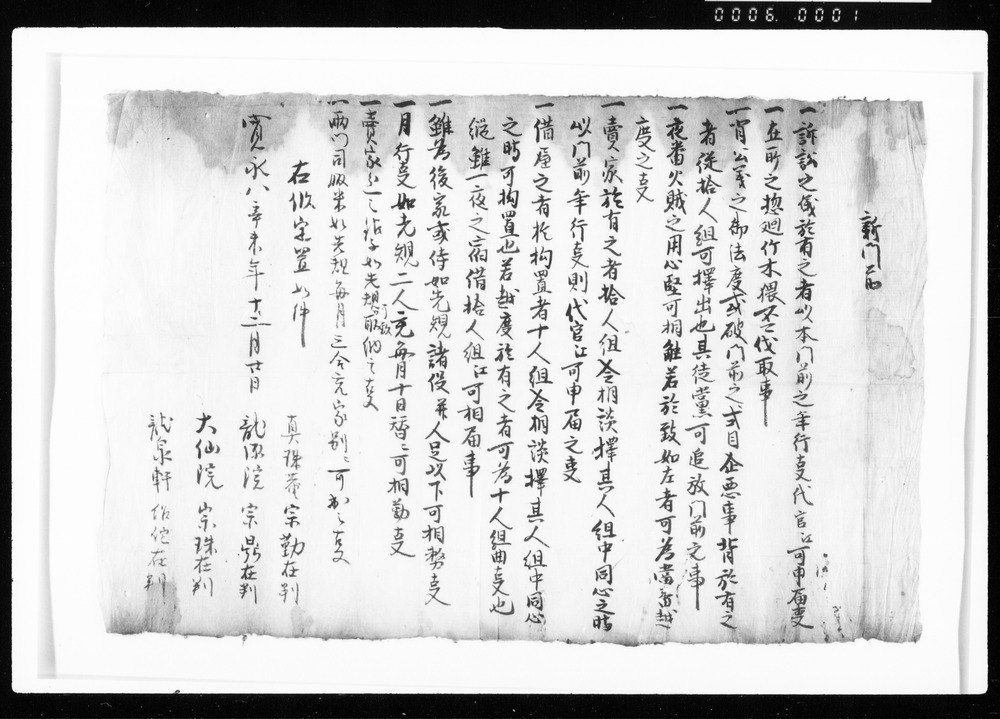 0006.0001
新門前
一訴訟之儀於有之者以本門前之年行事代官江可申届事
一在所之惣廻竹木猥不可伐取事
一背公義之御法度或破門前之式目企悪事背於有之
者従拾人組可擇出也其徒黨可追放門前之事
一夜番火賊之用心堅可相触若於致如左者可為當番越
度之事
一賣家於有之者拾人組令相談擇其人組中同心之時
以門前年行事則代官江可申届之事
一借屋之者於拘置者十人組令相談擇其人組中同心
之時可拘置也若越度於有之者可為十人組曲事也
縦雖一夜之宿借拾人組江可相届事
一雖為後家或侍如先規諸役并人足以下可相勤事
一月行事如先規二人充毎月十日替ニ可相勤事
一賣家 如先規可致取納之事
一両門司服米如先規毎月三合充家別ニ可出之事
右條定置如件
寛永八辛未年十二月廿日
真珠菴 宗勤在判
龍源院 宗鼎在判
大仙院 宗珠在判
龍泉軒 在判